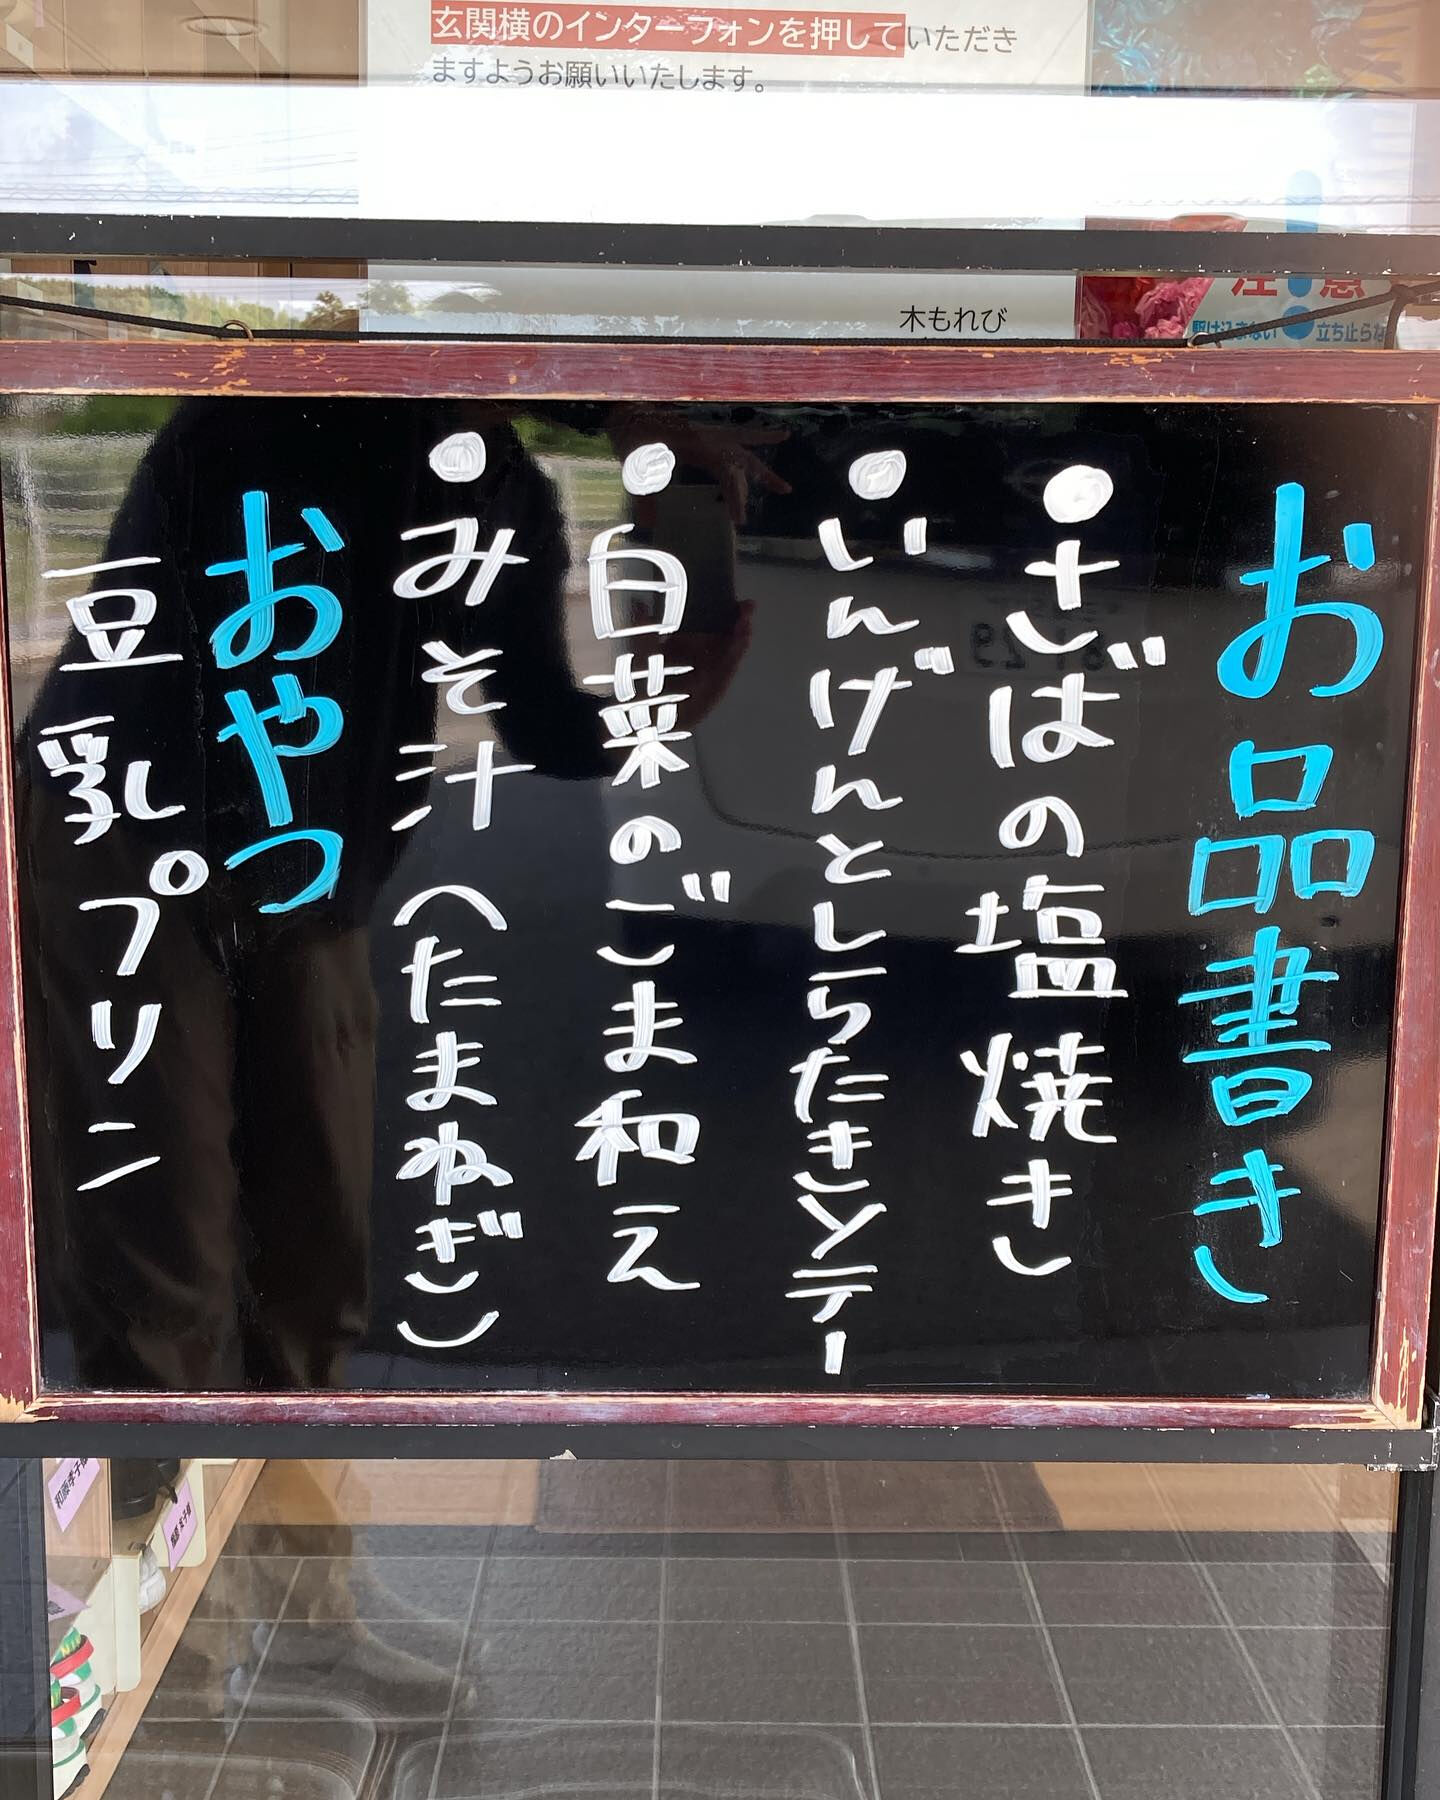 玄関横のインターフォンを押していただき
ますようお願いいたします。
木もれび
注意
駆け込まない
立ち止らな
お品書き
●さばの塩焼き
●いんげんとしらたきソテー
●白菜のごま和え
●みそ汁(たまねぎ)
おやつ
豆乳プリン